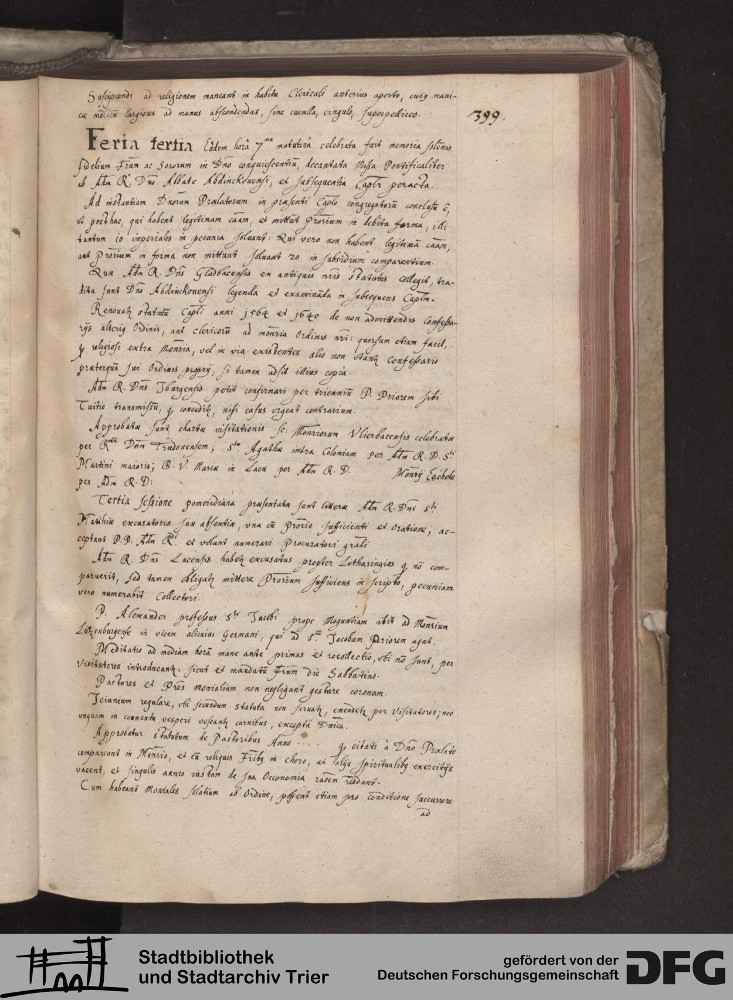 Suscipiendi ad religionem maneant in habitu Clericali anterius aperto, cuiq mani-
cæ largiores ad manus abscondendas, sine cuculla, cingulo, superpelliceo.
399.
Feria tertia Eadem hora 7ma matutina celebrata fuit memoria solenis
fidelium Frum ac Sororum in Dno conquiescentiu, decantata Missa Pontificaliter
ab Adm R. Dno Abbate Abdinckouensi, et subsequentia Caplr peracta.
Ad instantiam Dnorum Prælatorum in præsenti Caplo congregatoru conclusu e,
vt posthac, qui habent legitimam caam, et mittut Prorium in debita forma, illi
tantum 10 imperiales in pecunia soluant: Qui vero non habent legitima caam,
aut Prorium in forma non mittunt soluant 20 in subsidium comparentium.
Quæ Adm R. Dns Gladbacensis ex antiquis nris statutis collegit, tra-
dita sunt Dno Abdinckouensi legenda et examinada in subsequens Caplm.
Renouatr statutu Capli anni 1564 et 1640 de non admittendis Confessa-
rijs alterig Ordinis, aut clericoru ad monria Ordinis nri: quorsum etiam facit,
q religiosi extra Monria, vel in via existentes alio non vtantr Confessario
præterqua sui Ordinis proprij, si tamen adsit illius copia.
Adm R. Dns Iburgensis petit confirmari per triennium P. Priorem sibi
Tuitio transmissu, q conceditr, nisi casus vrgeat contrarium.
Approbatæ sunt chartæ visitationis sc. Monriorum Vlierbacensis celebratæ
per Rmu Dnm Trudonensem; Stæ Agathæ intra Coloniam per Adm R. D. Sti
Martini maioris; B. V. Mariæ in Lacu per Adm R. D. Monrij Eschele
per Adm R. D:
Tertia sessione pomeridiana præsentatæ sunt litteræ Adm R. Dni Sti
Matthiæ excusatoriæ suæ absentiæ, vna cu Prorio sufficienti et oratione; ac-
ceptant P.P. Adm Rdi et volunt numerari Procuratori grali
Adm R. Dns Lacensis habetr excusatus propter Lotharingios q no com-
paruerit, sed tamen obligatr mittere Prorium sufficiens in scripto, pecuniam
vero numerabit Collectori.
P. Alexander professus Sti Jacobi prope Moguntiam ibit ad Monrium
Lutzenburgense in vicem alicuius Germani, qui ad Stum Jacobum Priorem agat.
Meditatio ad mediam hora mane ante primas et recollectio, vbi no sunt, per
visitatores introducantr. sicut et mandatu Frum die Sabbatino.
Pastores et Pres monialium non negligant gestare coronam.
Jeiunium regulare, vbi secundum statuta non seruatr, emendetr per Visitatores; nec
vnquam in conuentu vesperi vescantr carnibus, excepta Dnica.
Approbatur statutum de Pastoribus Anno .... qo citati à Dno Prælato
compareant in Monrio, et cu reliquis Fribq in choro, et alijs spiritualibq exercitijs
vacent, et singulis annis iustam de sua Oeconomia raoem reddant.
Cum habeant Moniales solatium ab Ordine, possent etiam pro conditione succurrere
ad
Stadtbibliothek
und Stadtarchiv Trier
gefördert von der
Deutschen Forschungsgemeinschaft
DFG